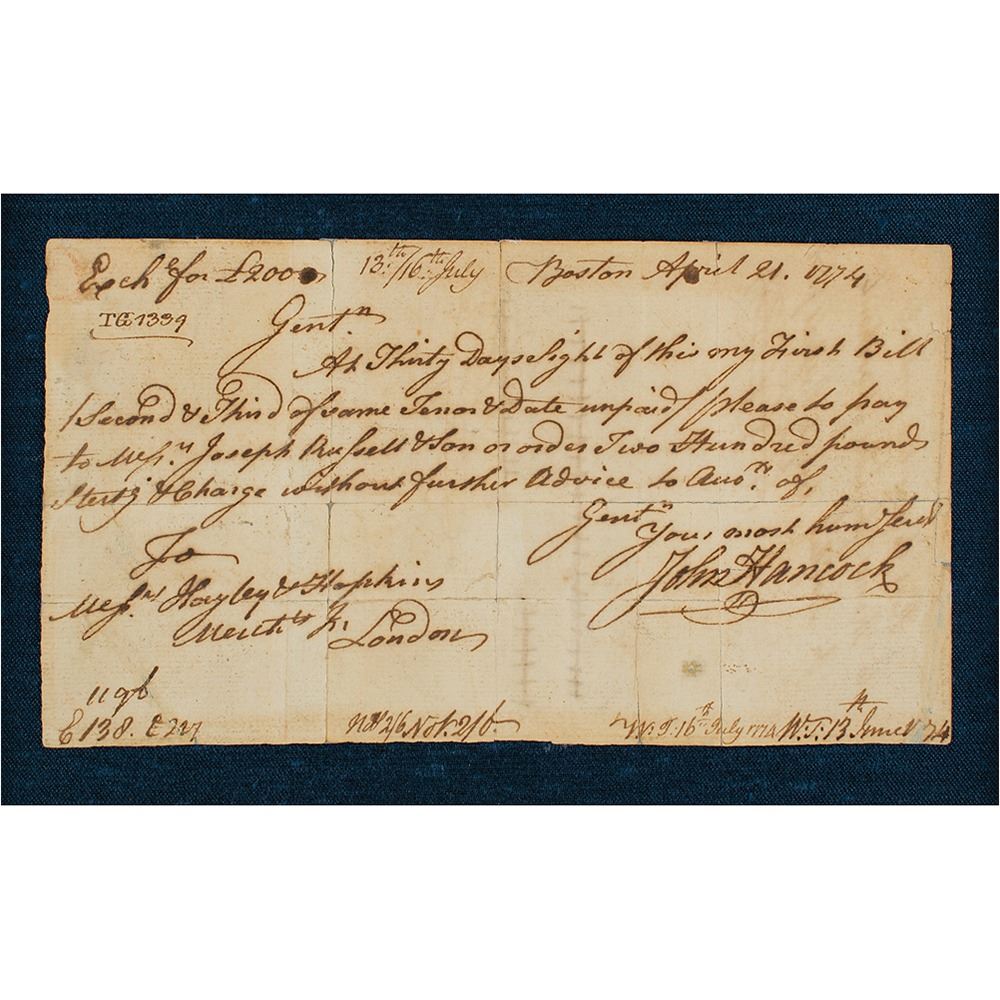 Exchᵉ for £200 13:th/16:th July Boston April 21. 1774
IG 1339
Gentⁿ
At Thirty Days sight of this my First Bill
/Second & Third of same Tenor & Date unpaid/ please to pay
to Messrs Joseph Russell & Son or order Two Hundred pounds
Sterlg & Charge without further Advice to
of,
Gentⁿ
Your most hum Servt
John Hancock
To
Messrs Hayley & Hopkins
Merchts In London
138. No. 2/6. W: T: 16th July 1774 W: T: 13th June 74